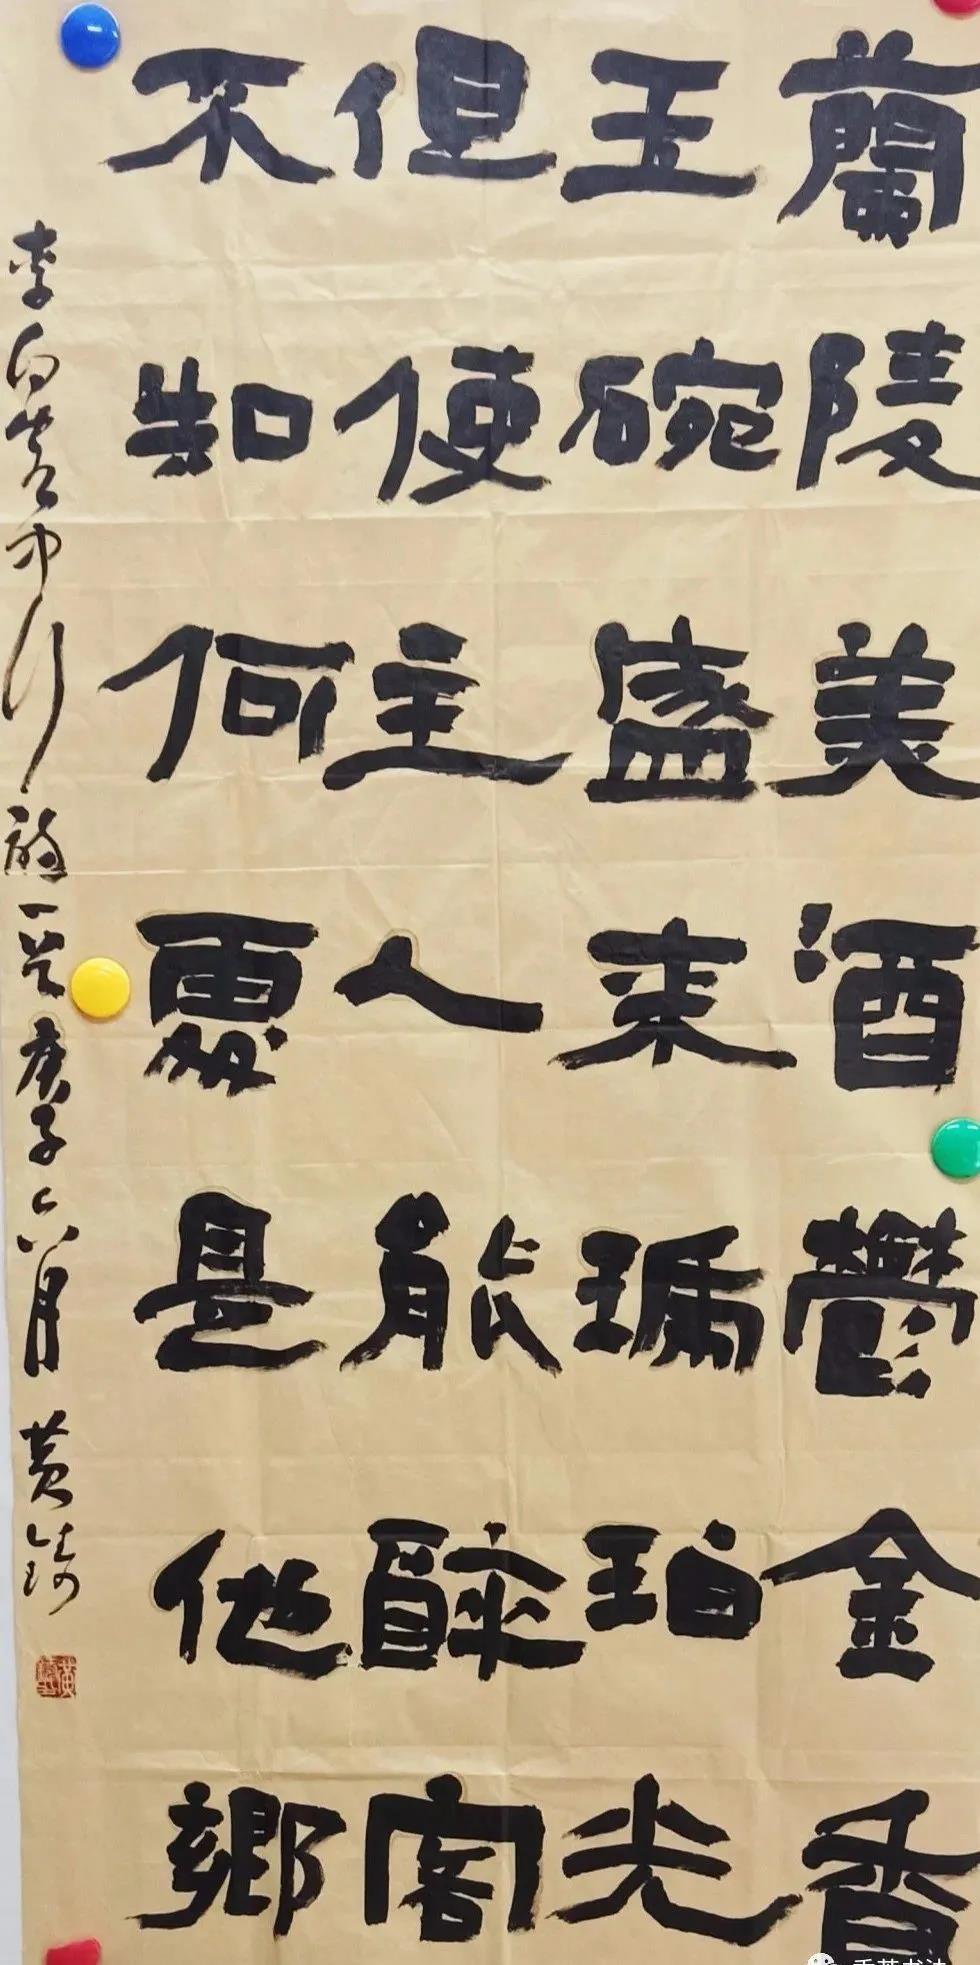 蘭陵美酒鬱金香
玉碗盛来琥珀光
但使主人能醉客
不知何處是他鄉
李白客中行詩一首 庚子六月 黄